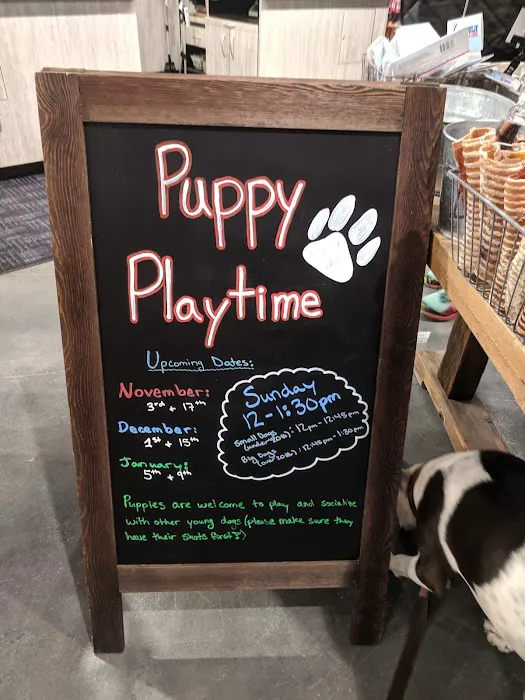 Puppy
Playtime
Upcoming Dates:
November:
3rd + 17th
December:
1st + 15th
January:
5th + 9th
Sunday
12-1:30pm
Small Dogs
(under 20lb): 12pm-12:45pm
Big Dogs
(over 20lb): 12:45pm-1:30pm
Puppies are welcome to play and socialize
with other young dogs (please make sure they
have their shots first!)